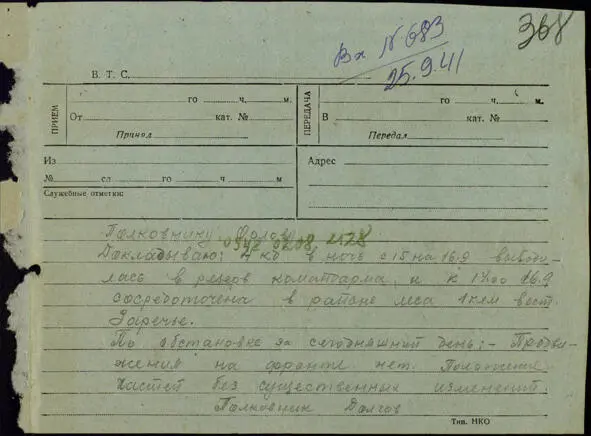 368
Вх № 683
25.9.41
В. Т. С.
ПРИЕМ
го ч. м.
От кат. №
Принял
ПЕРЕДАЧА
го ч. м.
В кат. №
Передал
Из
№ сл го ч м
Служебные отметки:
Адрес
Полковнику
Докладываю: 4 кд в ночь с 15 на 16.9 выводи-
лась в резерв командарма, и к 16.9
сосредоточена в районе леса 1 клм вост.
Заречье.
По обстановке за сегодняшний день: - Продви-
жения на фронте нет. Положение
частей без существенных изменений.
Полковник Долгов
Тип. НКО